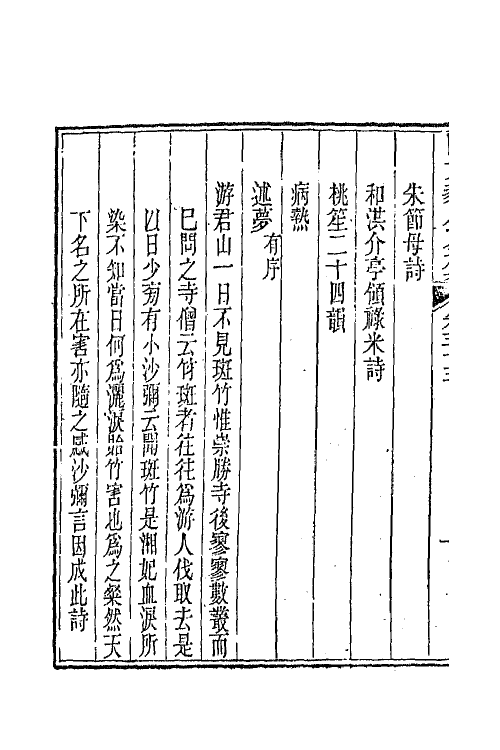 朱節母詩
和洪介亭領祿米詩
桃笙二十四韻
病熱
述夢有序
游君山一日不見斑竹惟崇勝寺後寥寥數叢而
已問之寺僧云竹斑者往往為游人伐取去是
以日少旁有小沙彌云聞斑竹是湘妃血淚所
染不知當日何為灑淚貽竹害也為之粲然天
下名之所在害亦隨之感沙彌言因成此詩